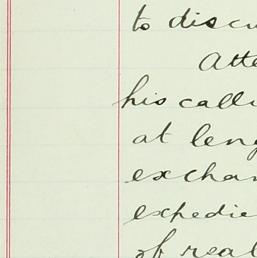 to discu
Atte
his calli
at leng
exchan
expedie
of real